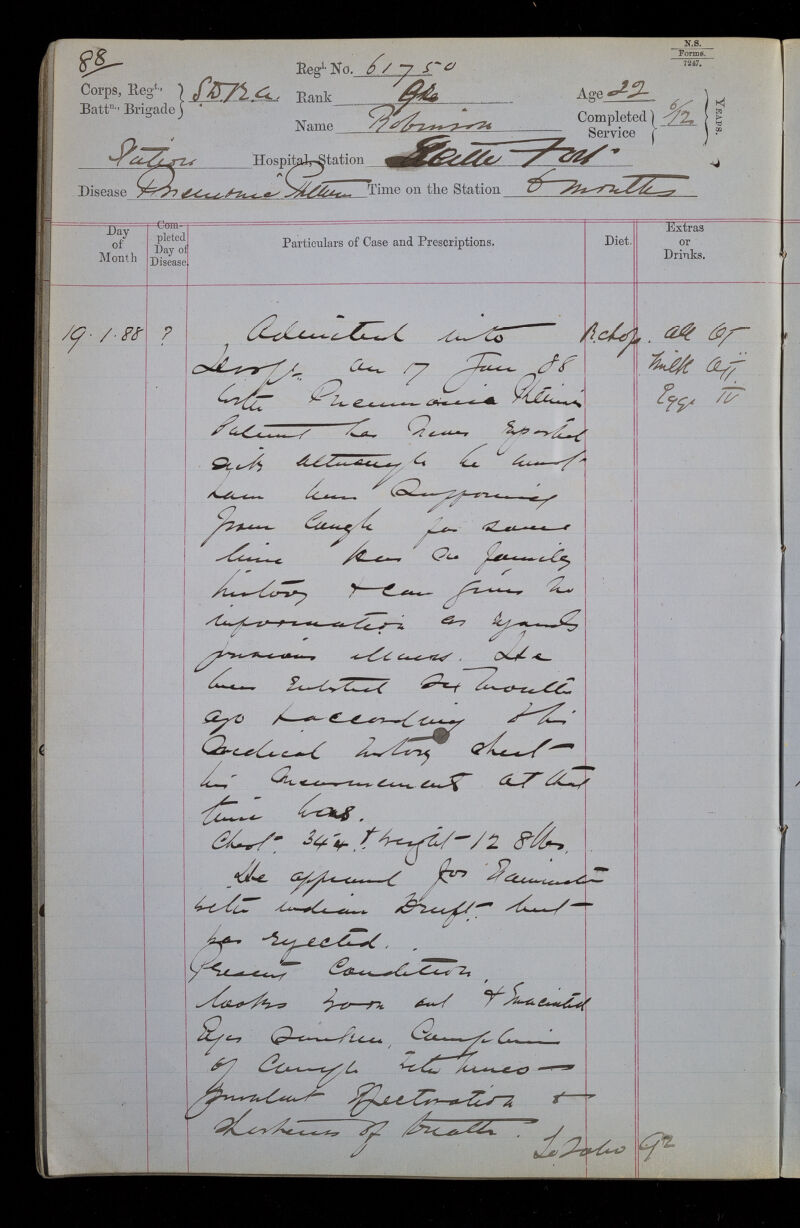 88
N.S.
Forms.
7247.
Regl. No. 61750
Corps, Regt., Battn., Brigade } S.D.R.A.
Rank Gr
Age 22
Name Robinson
Completed Service } 6/12 } YEARS.
Station Hospital, Station Fort
Disease Pneumonic Phthisis Time on the Station 6 months
Day of Month
Completed Day of Disease.
Particulars of Case and Prescriptions.
Diet.
Extras or Drinks.
19.1.88 ? Admitted into R.chop. Ale OT
on 17 Jan 88 Milk OII
with Pneumonic Phthisis Eggs IV
Patient has never reported
sick although he must
have been suffering
from Cough for some
time has no family
history & can give no
information as regards
previous illness. He
been Enlisted six months
ago & according to his
medical history sheet
his measurements at that
time was.
Chest 34¼ & weight 12 8lbs.
He appeared for Examination
with indian Draft but
was rejected.
Present Condition.
looks worn out & Emaciated
Eyes sunken, Complains
of Cough with muco-
purulent Expectoration &
shortness of breath.
To folio 92